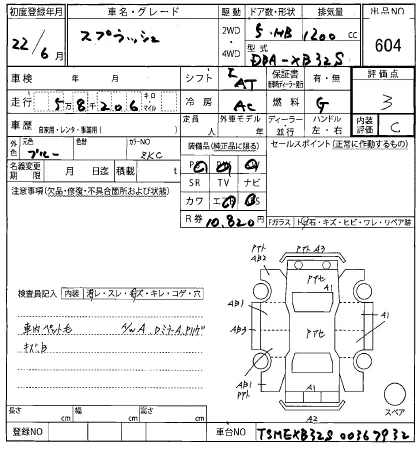 初度登録年月 車名・グレード 駆動 ドア数・形状 排気量 出品NO
22/6月 スプラッシュ 2WD・4WD 5・HB 1200 cc 604
型式 DBA-XB32S
車検 年 月 シフト IAT 保証書 新車時ディーラー発行 有・無 評価点
走行 5万8千206 キロ マイル 冷房 AC 燃料 G 3
車歴 自家用・レンタ・事業用( ) 定員 人 外車モデル 年 ディーラー 並行 ハンドル 左・右 内装評価 C
外色 元色 ブルー 色替 カラーNO ZKC 装備品(純正品に限る) セールスポイント(正常に作動するもの)
名義変更期限 月 日迄 積載 t PS PW
SR TV ナビ
注意事項(欠品・修復・不具合箇所および状態) カワ エアB
R券 10,820円 Fガラス トビ石・キズ・ヒビ・ワレ・リペア跡
検査員記入 内装 汚レ・スレ・キズ・キレ・コゲ・穴
A3
AB2
A1
AB1
AB3
A1
AB1
A1
A2
スペア
キズB
長さ cm 幅 cm 高さ cm
登録NO 車台NO TSMEXB32S00367932